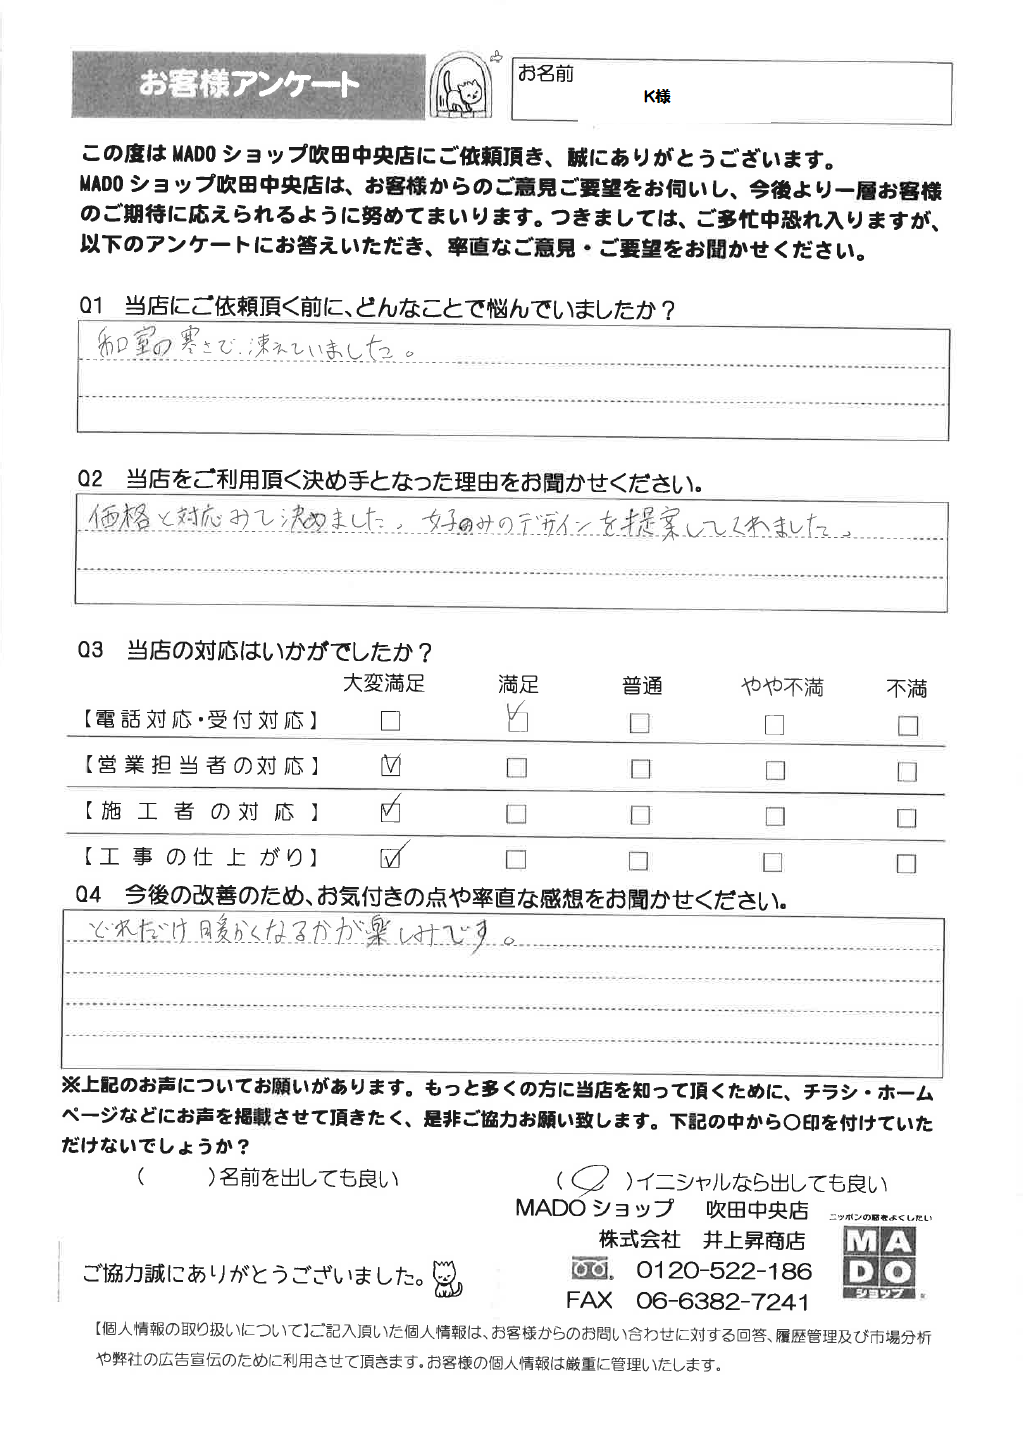 お客様アンケート
お名前
K様
この度は MADO ショップ吹田中央店にご依頼頂き、誠にありがとうございます。
MADO ショップ吹田中央店は、お客様からのご意見ご要望をお伺いし、今後より一層お客様
のご期待に応えられるように努めてまいります。つきましては、ご多忙中恐れ入りますが、
以下のアンケートにお答えいただき、率直なご意見・ご要望をお聞かせください。
Q1 当店にご依頼頂く前に、どんなことで悩んでいましたか？
和室の寒さで凍えていました。
Q2 当店をご利用頂く決め手となった理由をお聞かせください。
価格と対応みて決めました。女子のみのデザインを提案してくれました。
Q3 当店の対応はいかがでしたか？
大変満足 満足 普通 やや不満 不満
【電話対応・受付対応】
【営業担当者の対応】
【施工者の対応】
【工事の仕上がり】
Q4 今後の改善のため、お気付きの点や率直な感想をお聞かせください。
どれだけ暖かくなるかが楽しみです。
※上記のお声についてお願いがあります。もっと多くの方に当店を知って頂くために、チラシ・ホーム
ページなどにお声を掲載させて頂きたく、是非ご協力お願い致します。下記の中から〇印を付けていた
だけないでしょうか？
（　　）名前を出しても良い
（〇）イニシャルなら出しても良い
MADO ショップ 吹田中央店
株式会社 井上昇商店
0120-522-186
FAX 06-6382-7241
ニッポンの窓をよくしたい
MA
DO
ショップ
ご協力誠にありがとうございました。
【個人情報の取り扱いについて】ご記入頂いた個人情報は、お客様からのお問い合わせに対する回答、履歴管理及び市場分析
や弊社の広告宣伝のために利用させて頂きます。お客様の個人情報は厳重に管理いたします。